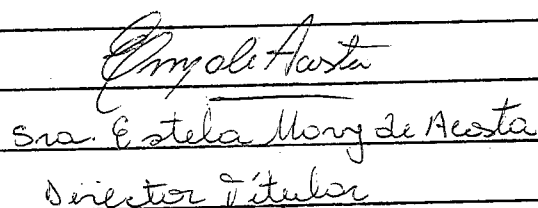 Sra. Estela Mory de Acosta
Director Títular